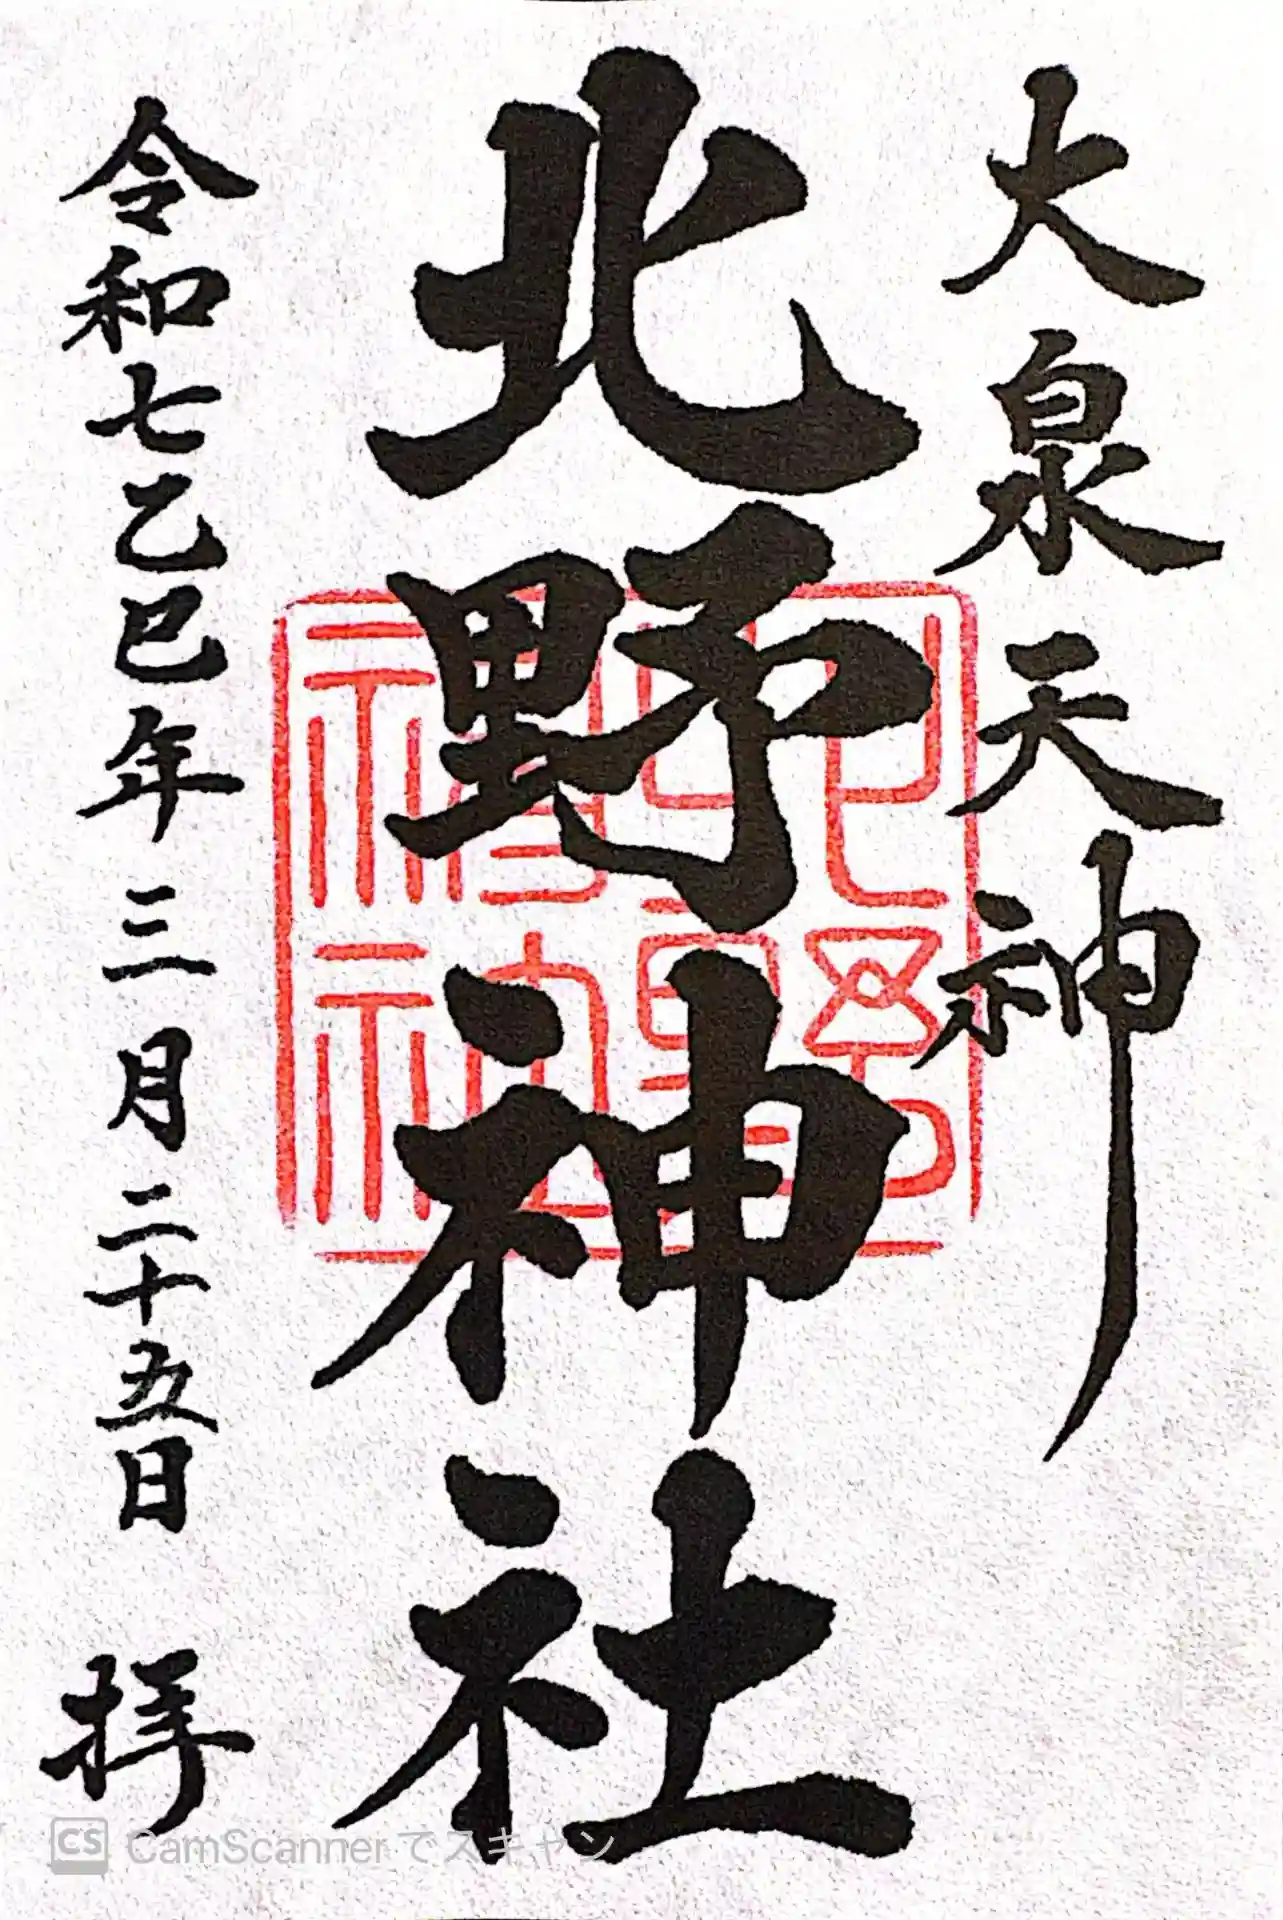 大泉天神
北野神社
令和七乙巳年三月二十五日 拝
CS CamScannerでスキャン